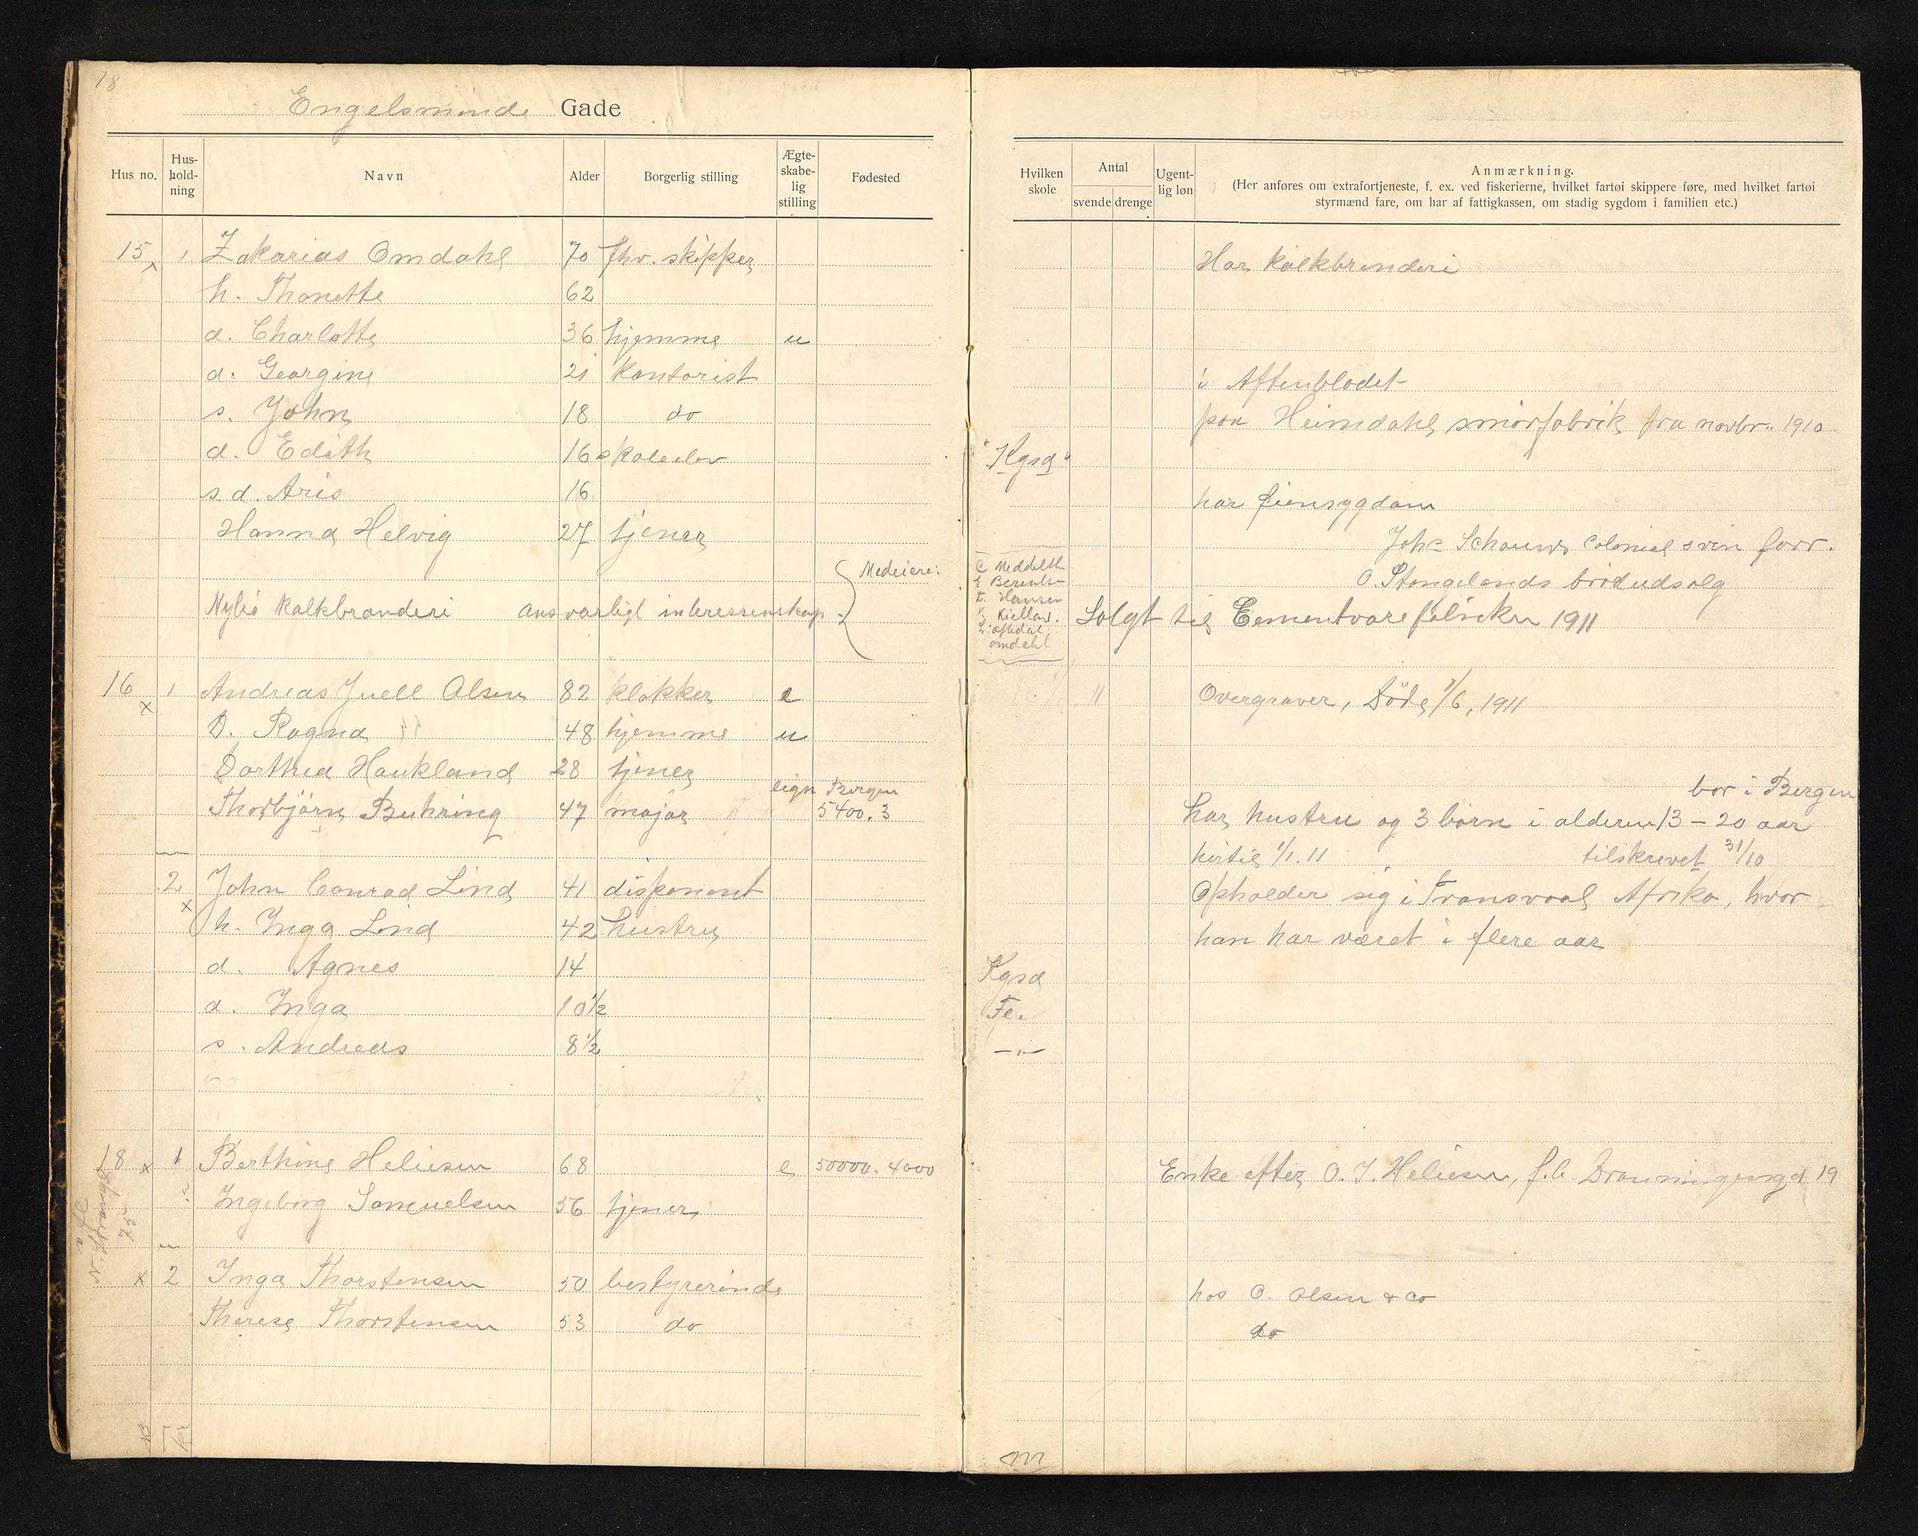 18
Engelsminde Gade
Hus no. Hus-hold-ning Navn Alder Borgerlig stilling Ægte-skabe-lig stilling Fødested
Hvilken skole Antal svende drenge Ugent-lig løn Anmærkning.
(Her anføres om extrafortjeneste, f. ex. ved fiskerierne, hvilket fartøi skippere føre, med hvilket fartøi
styrmænd fare, om har af fattigkassen, om stadig sygdom i familien etc.)
15 x 1 Zakarias Omdahl 70 fhv. skipper Har kalkbrenderi
h. Thonette 62
d. Charlotte 36 hjemme u
d. Georgine 21 kontorist i Aftenbladet
s. John 18 do paa Heimdahls smørfabrik fra novbr. 1910
d. Edith 16 skoleelev "Kgsd"
s d. Aris 16 har øiensygdom
Hanna Helvig 27 tjener Johs Schouws Colonial svin forr.
Medeiere: C Middelth E Berentsen Hansen Kielland. Omdahl O. Stangelands brødudsalg
Nylig kalkbrænderi ansvarligt interessenskap Solgt til Cementvarefabriken 1911
16 x 1 Andreas Juell Olsen 82 klokker e " Overgraver, Døde 1/6, 1911
D. Ragna " 48 hjemme u
Dorthea Haukland 28 tjener
eign Bergen bor i Bergen
Thorbjørn Buhring 47 major 5400. 3 har hustru og 3 børn i alderen 13 - 20 aar
hertil 1/1. 11 tilskrevet 31/10
2 x John Conrad Lind 41 disponent Opholder sig i Transvaal Afrika, hvor
h. Inga Lind 42 hustru han har været i flere aar
d. Agnes 14 Kgsd
d. Inga 10 1/2 Fe.
s. Andreas 8 1/2 - " -
18 x 1 Berthine Heliesen 68 e 50000. 4000 Enke efter O. J. Heliesen, f. b. Dronningensgd 19
Ingeborg Samuelsen 56 tjener
x 2 Inga Thorstensen 50 bestyrerinde hos O. Olsen & Co
Therese Thorstensen 53 do do